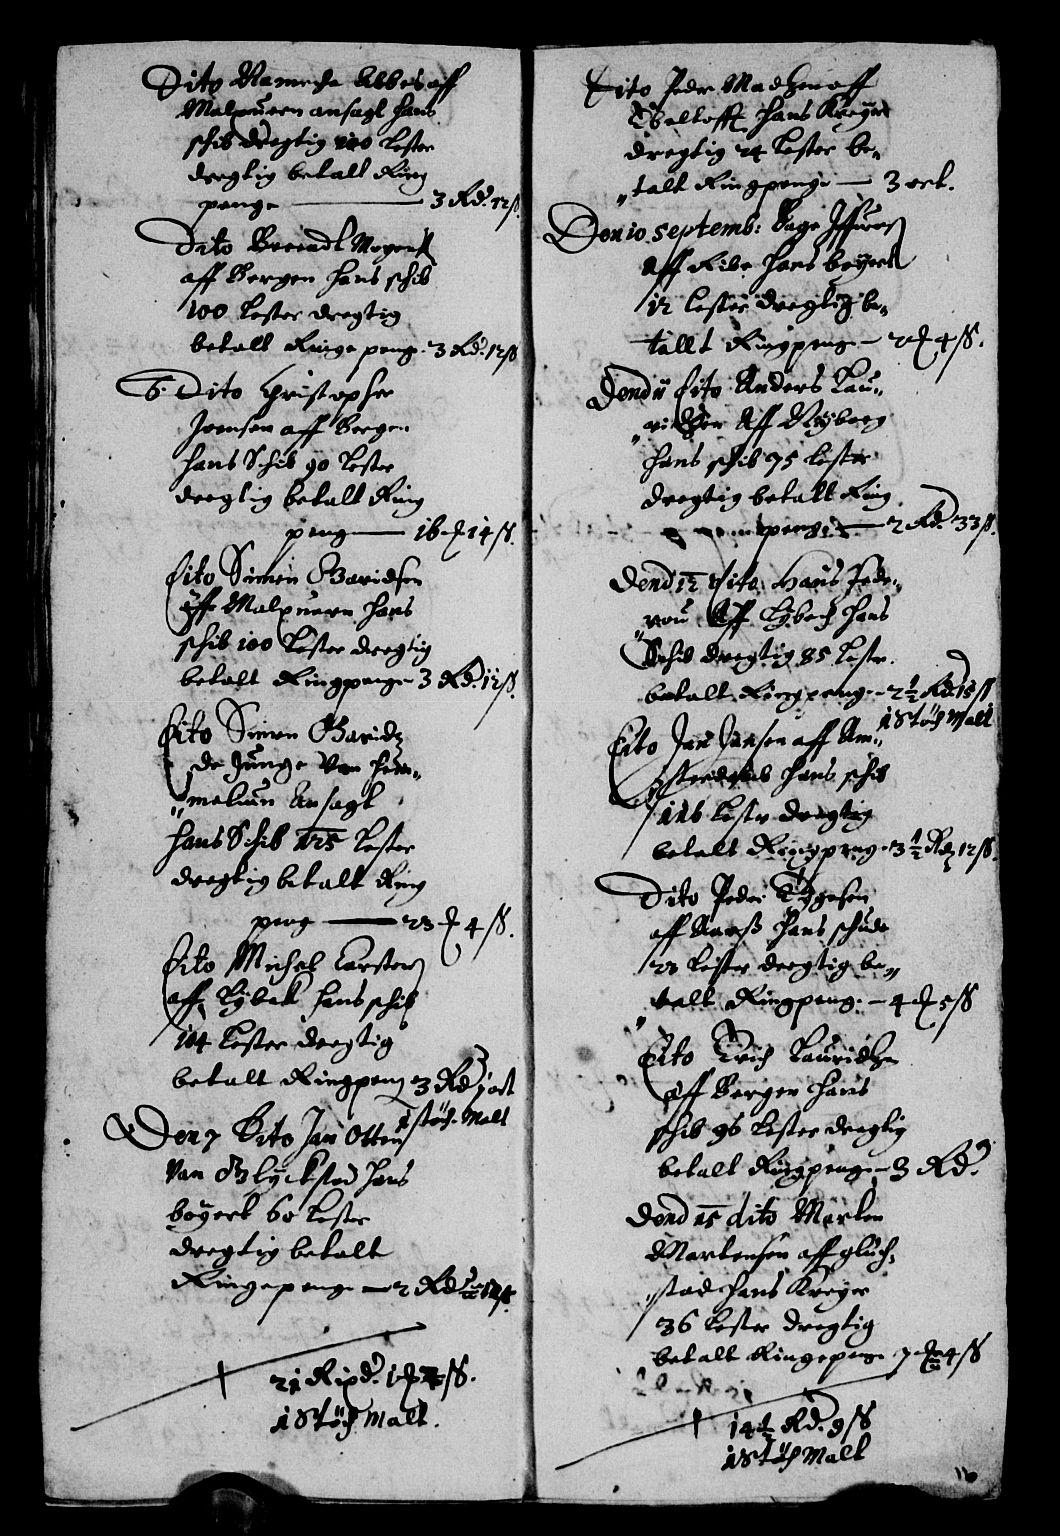 Dito Ramcke Ebbes aff
Malquern ansagt hans
schib dregtig 100 Lester
dregtig betalt Ring
penge — 3 Rd. 12 ß.
Dito Berendt Mogens
aff Bergen hans schib
100 Lester dregtig
betalt Ringe peng. 3 Rd. 12 ß
6. Dito Christopher
Joensen aff Bergen
hans Schib 90 Lester
dregtig betalt Ring
peng — 16 14 ß.
Dito Simen Davidsen
aff Malquern hans
schib 100 Lester dregtig
betalt Ringpenge 3 Rd. 12 ß.
Dito Simen Davidtz
de Junge Van
ansagt
hans Schib 125 Lester
dregtig betalt Ring
peng — 23 4 ß.
Dito Michel Carstens
aff Lybek hans schib
104 Lester dregtig
betalt Ringpeng 3 Rd 1 ort
1 stöch Malt
Den 7 Dito Jan Otten
Van Glyckstad hans
boyert 60 Lester
dregtig betalt
Ringepenge — 2 Rd
21 Ripd.
1 Stöch Malt.
Dito Peder Madtzen aff
Ebeltofft hans Kreyer
dregtig 24 Lester be-
talt Ringpenge — 3 ort.
Den 10 septemb: Aage
Aff Ribe hans boyert
12 Lester dregtig be-
tallt Ringpenge — 2 4 ß.
Dend 11 Dito Anders Lau-
ridtzen Aff Nyborg
hans schib 75 Lester
dregtig betalt Ring
penge — 2 Rd. 33 ß.
Dend 12 Dito Hans Peder-
Aff Lybech hans
Schib dregtig 85 Lester.
betalt Ringpenge — 2 1/2 Rd 15 ß
1 Stöch Malt
Dito Jan Jansen aff Am-
sterdam hans schib
116 Lester dregtig
betalt Ringpeng 3 1/2 Rd 12 ß.
Dito Peder Tygesen
aff Aarß hans schude
23 Lester dregtig be-
talt Ringpeng. — 4 5 ß
Dito Erich Lauridtzen
aff Bergen hans
schib 96 Lester dregtig
betalt Ringpenge — 3 Rd.
Dend 15 dito Morten
Martensen aff gluch-
stad hans Kreyer
36 Lester dregtig
betalt Ringepeng 7 4 ß
14 1/2 Rd. 9 ß
1 Stöch Malt